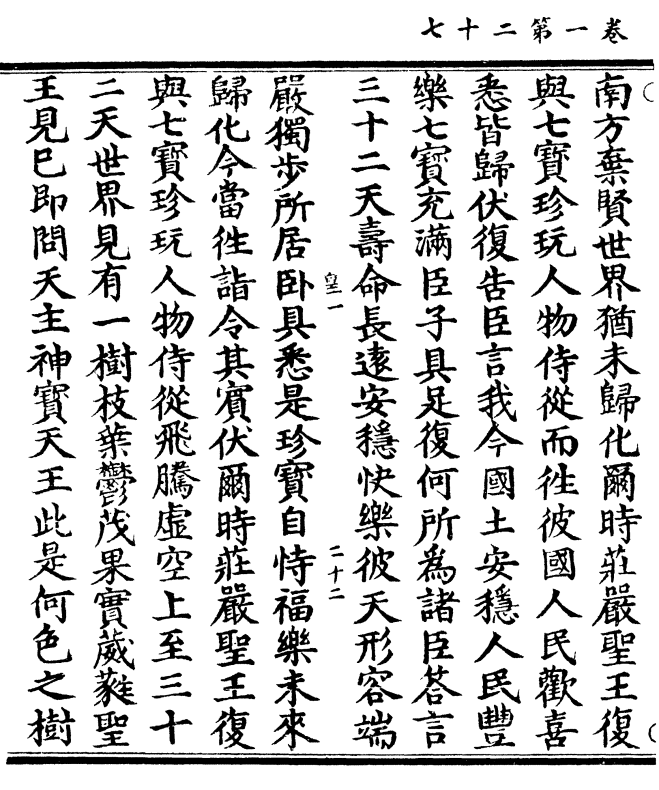 卷一第二十七
南方棄賢世界猶未歸化爾時莊嚴聖王復
與七寶珍玩人物侍從而徃彼國人民歡喜
悉皆歸伏復告臣言我今國土安穩人民豐
樂七寶充滿臣子具足復何所為諸臣荅言
三十二天壽命長遠安穩快樂彼天形容端
皇一
二十二
嚴獨步所居臥具悉是珍寶自恃福樂未來
歸化今當徃詣令其賓伏爾時莊嚴聖王復
與七寶珍玩人物侍從飛騰虛空上至三十
二天世界見有一樹枝葉鬱茂果實葳蕤聖
王見巳即問天主神寶天王此是何色之樹